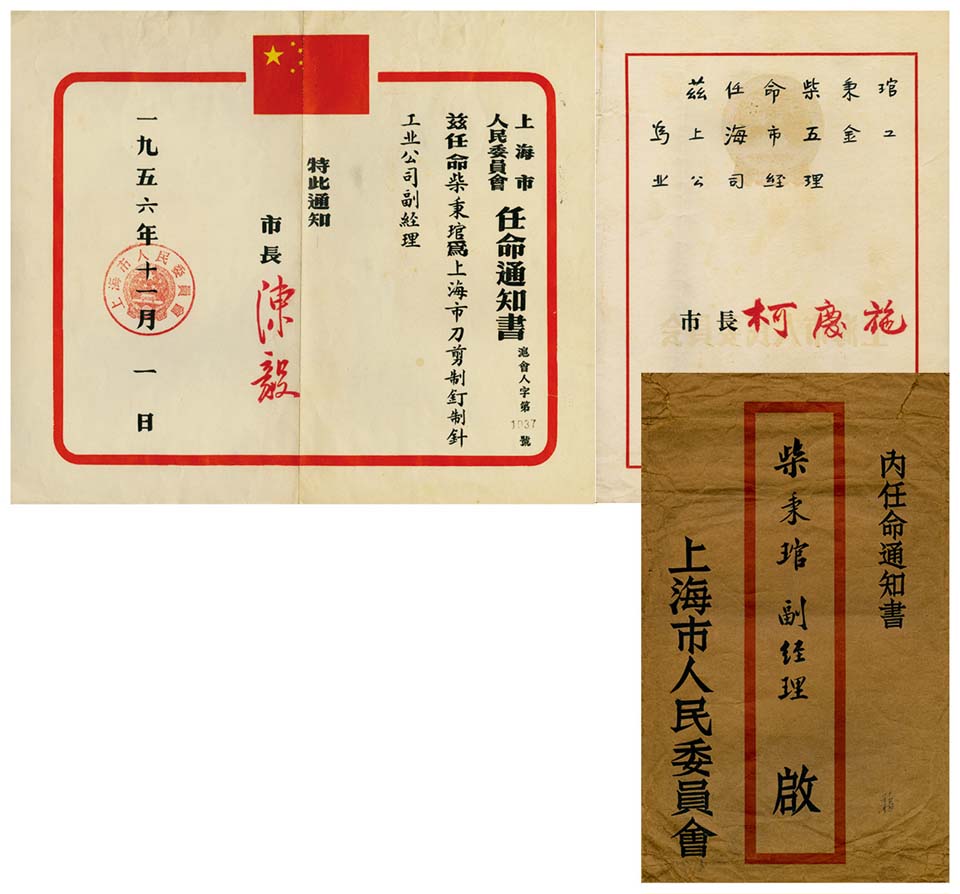 上海市
人民委員會
任命通知書
滬會人字第1037號
茲任命柴秉琯爲上海市刀剪制釘制針
工业公司副經理
特此通知
市長 陳毅
一九五六年十一月一日
上海市人民委員會
茲任命柴秉琯
爲上海市五金工
业公司經理
市長 柯慶施
内任命通知書
柴秉琯 副經理 啟
上海市人民委員會